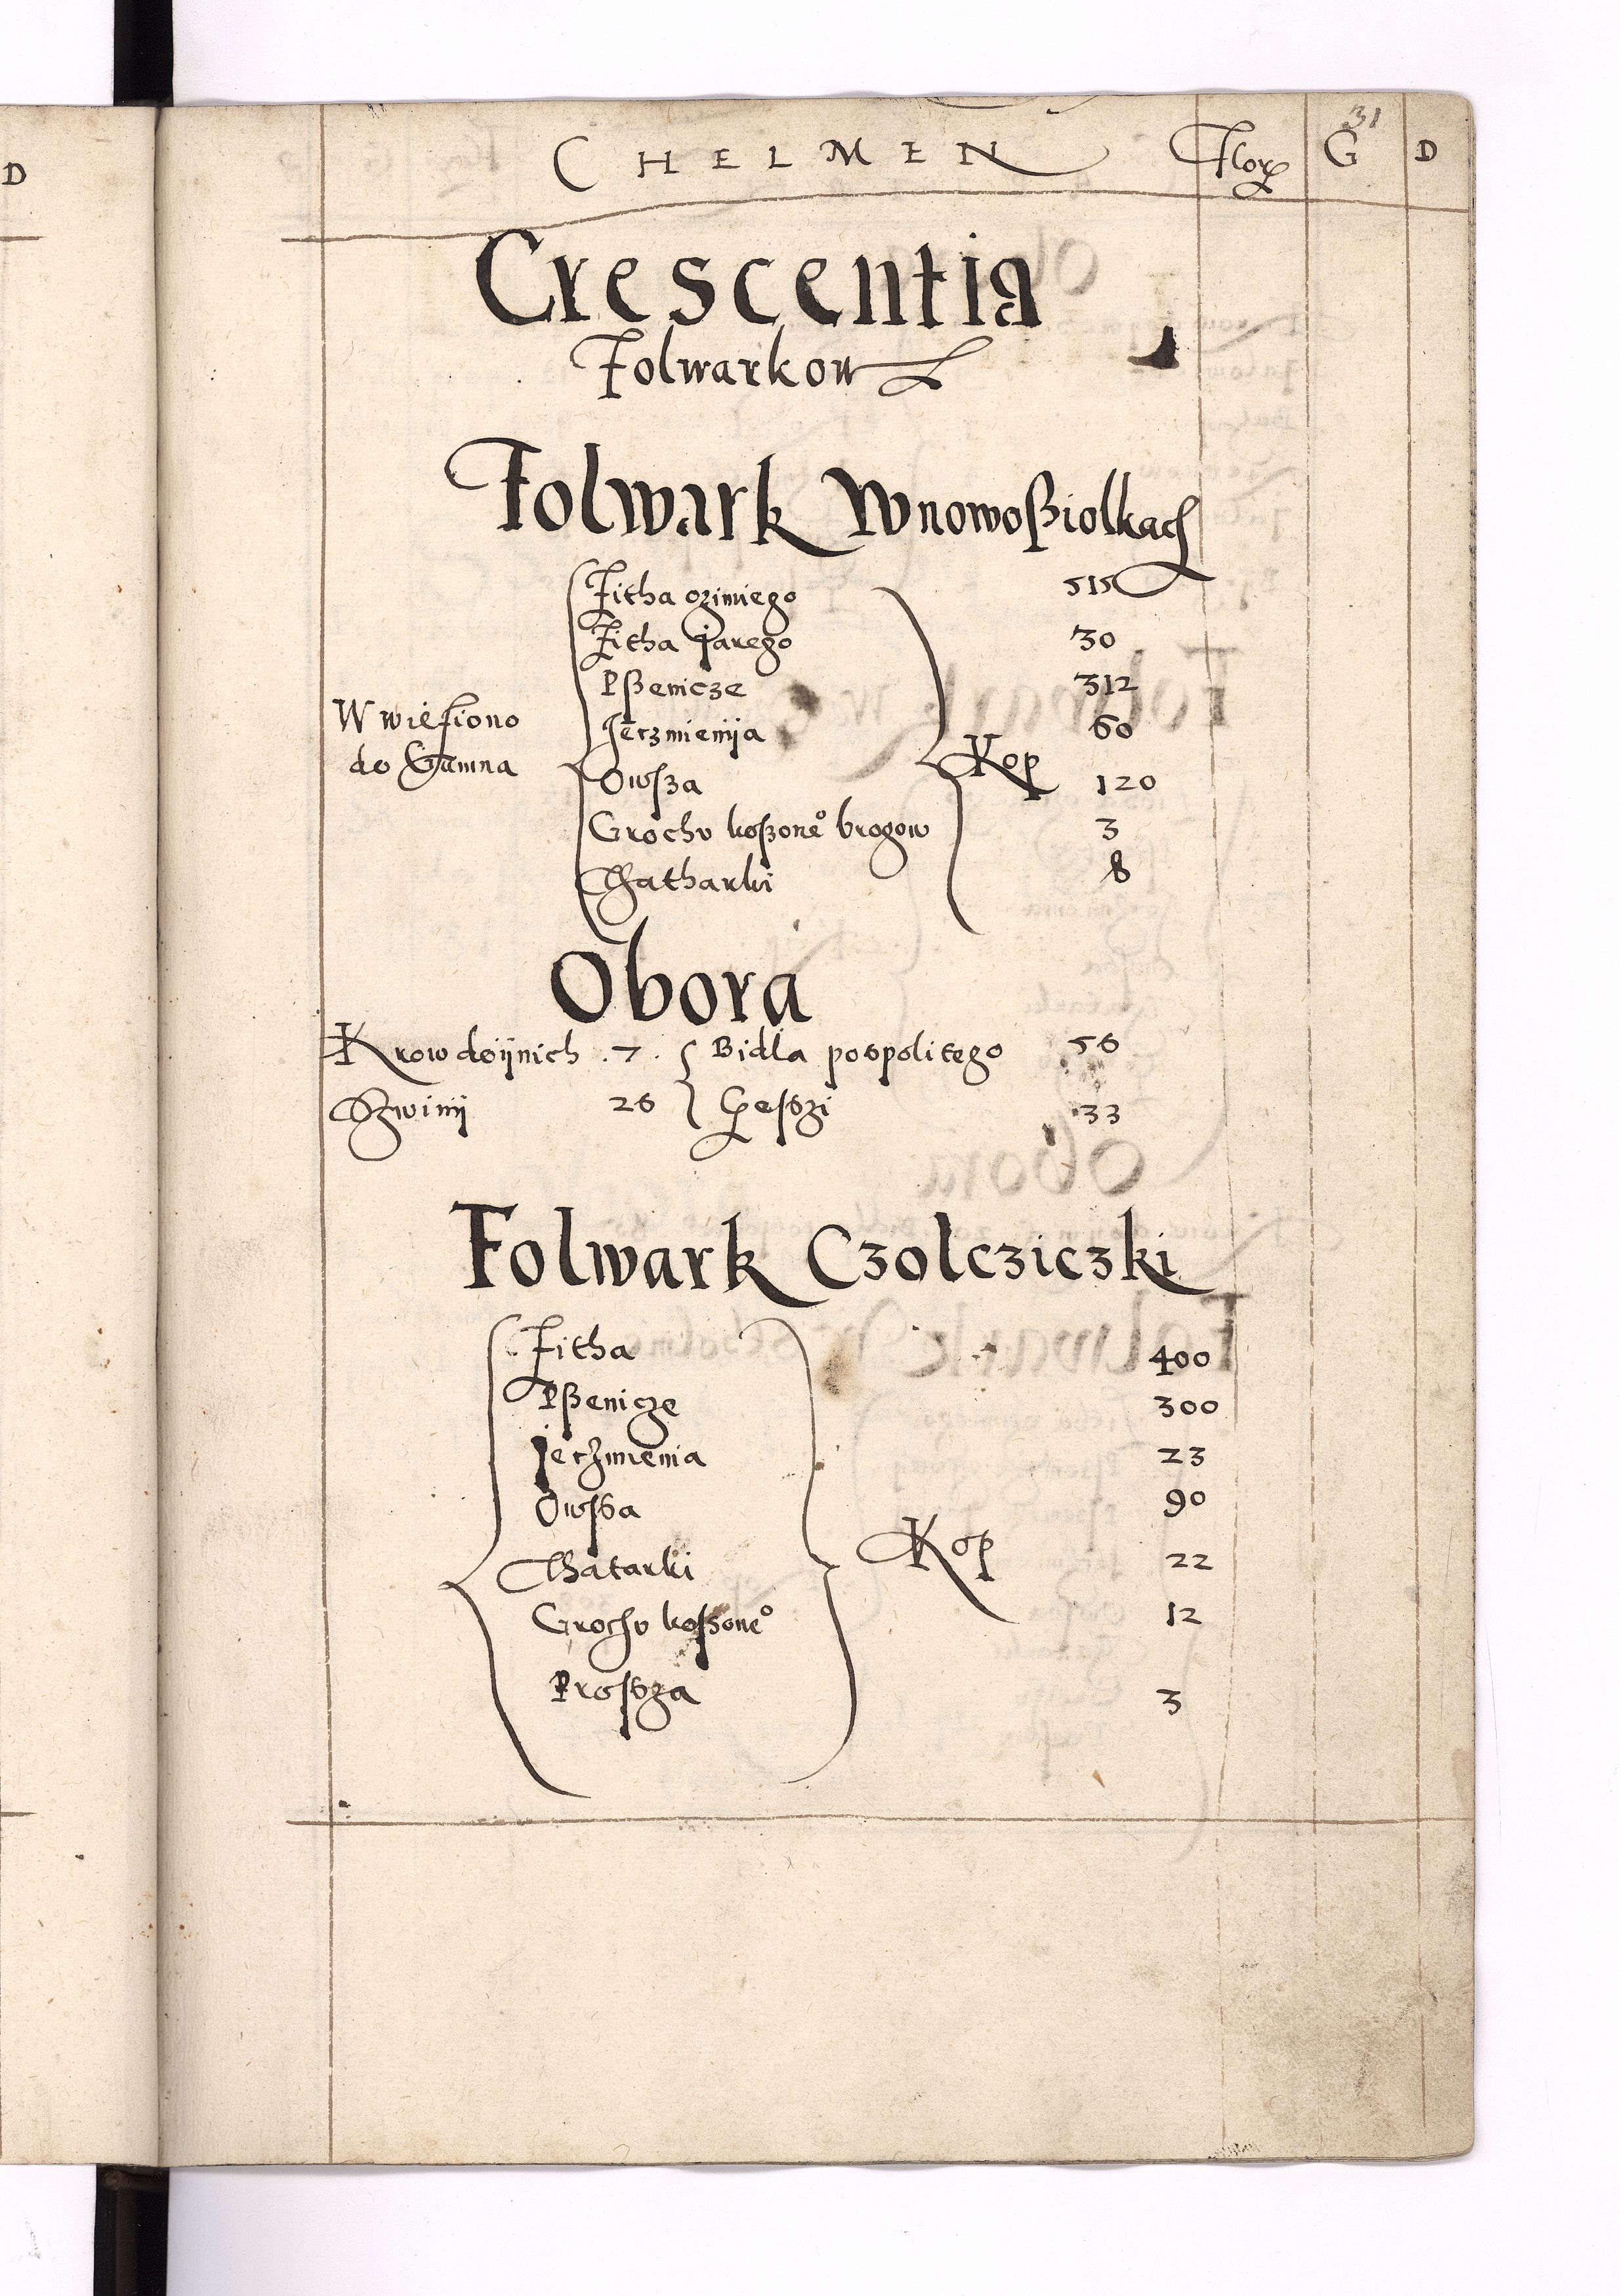 31
D
CHELMEN Flor G D
Crescentia
Folwarkow
Folwark Wnowoßiolkach
Zitha ozimiego 515
Zitha jarego 30
Pßenicze 312
W wieſiono Jeczmienija 60
do Gumna Owſza Kop 120
Grochv koßone° brogow 3
Thatharki 8
Obora
Krow doijnich .7. Bidla pospolitego 56
Szwinij 26 Gęſszi 33
Folwark Czolcziczki
Zitha 400
Pßenicze 300
jeczmienia 23
Owſsa 90
Kop
Thatarki 22
Grochv koſzone° 12
Proſsza 3